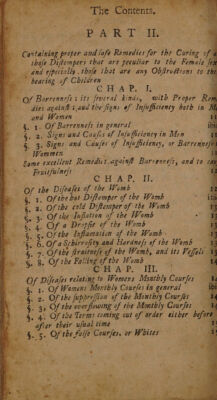 The Contents.
PART II.
Containing proper and safe Remedies for the Curing of
those Distempers that are peculiar to the Female
and especially those that are any Obstructions to
bearing of Children
CHAP. I.
Of Barrenness: its several kinds, with Proper
dies against it, and the Signs of Insufficiency both in
and Women
§. 1. Of Barrenness in general
§. 2. Signs and Causes of Insufficiency in Men
§. 3. Signs and Causes of Insufficiency, or Barrenness
Wommen
Some excellent Remedies against Barrenness, and to
Fruitfulness
CHAP. II.
Of the Diseases of the Womb
§. 1. Of the hot Distemper of the Womb
§. 2. Of the cold Distemper of the Womb
§. 3. Of the Inflation of the Womb
§. 4. Of a Dropsie of the Womb
§. 5. Of the Inflamation of the Womb
§. 6. Of a Schirrosity and Hardness of the Womb
§. 7. Of the straitness of the Womb, and its Vessels
§. 8. Of the Falling of the Womb
CHAP. III.
Of Diseases relating to Womens Monthly Courses
§. 1. Of Womens Monthly Courses in general
§. 2. Of the suppression of the Monthly Courses
§. 3. Of the overflowing of the Monthly Courses
§. 4. Of the Terms coming out of order either before
after their usual time
§. 5. Of the false Courses, or Whites